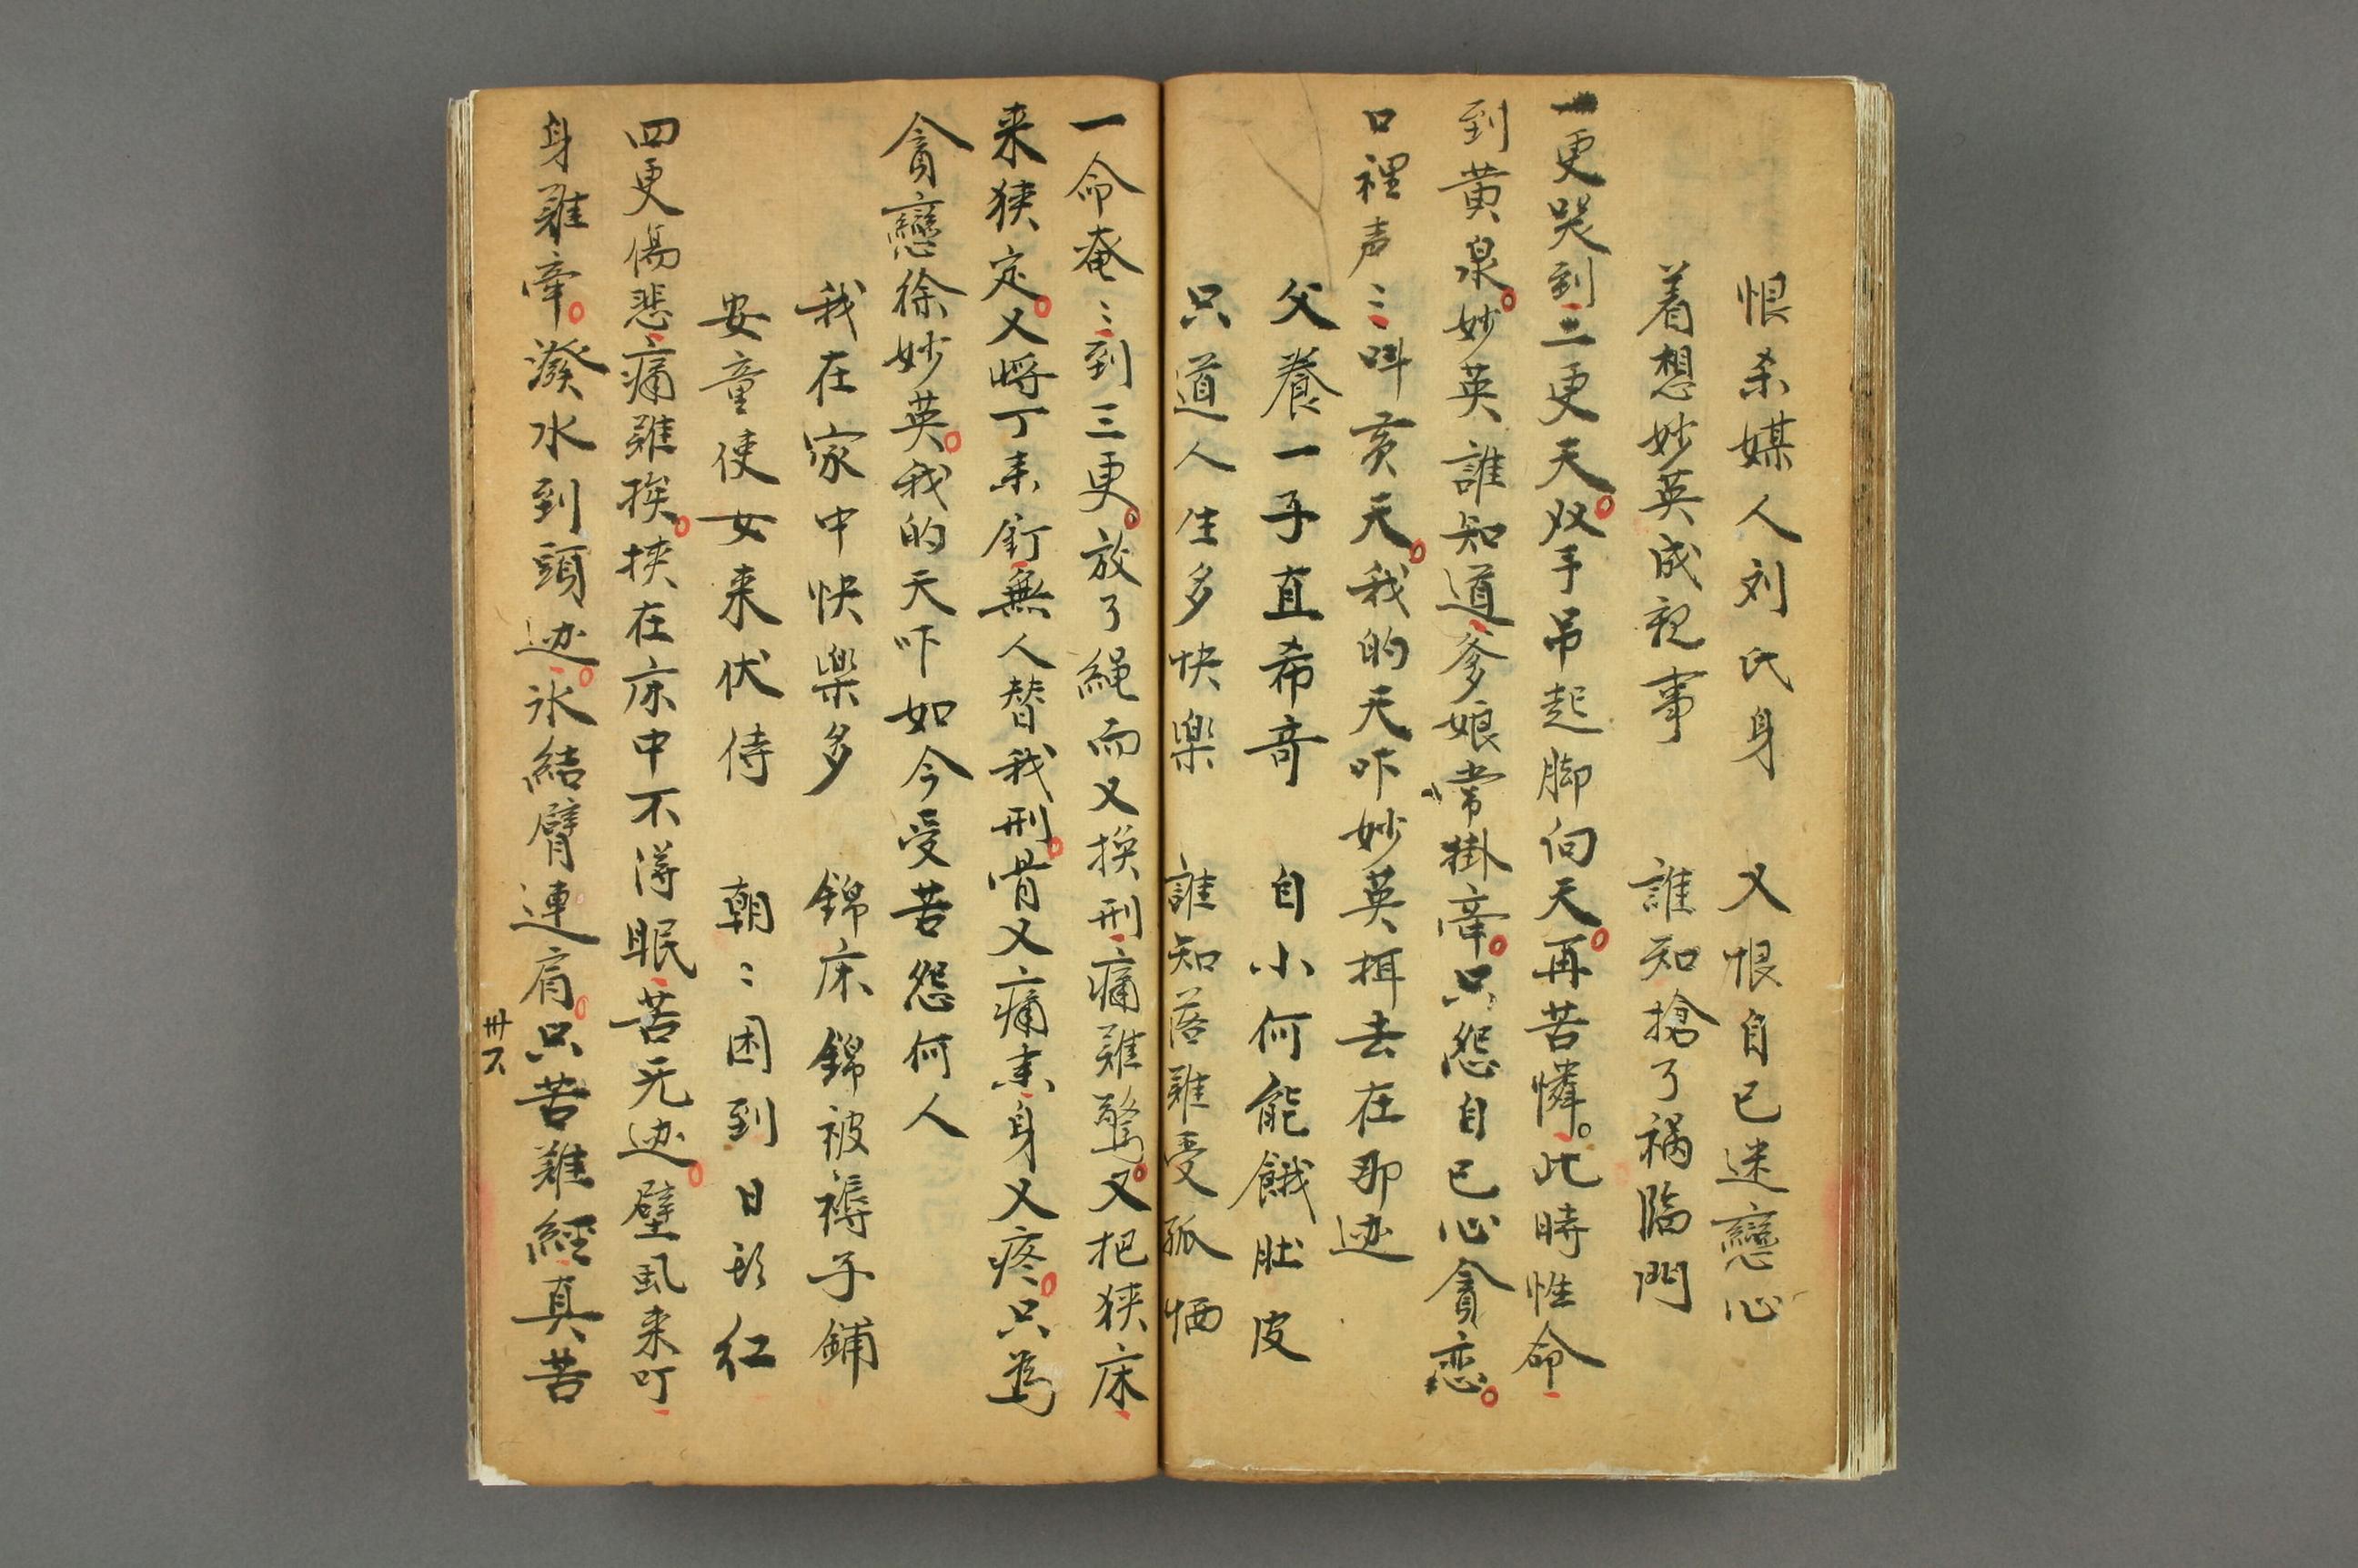 恨杀媒人刘氏身　又恨自已迷戀心
着想妙英成親事　誰知搶了禍臨門
一更哭到二更天双手吊起脚向天再苦憐此時性命
到黄泉妙英誰知道爹娘常掛牽只怨自已心貪恋
口裡声〻叫黄天我的天吓妙英拑去在那迹
父養一子直希奇　自小何能餓肚皮
只道人生多快樂　誰知落難受孤恓
一命奄〻到三更放了繩而又換刑痛難熬又把狹床
来狹定又將丁来釘無人替我刑骨又痛来身又疼只為
貪戀徐妙英我的天吓如今受苦怨何人
我在家中快樂多　錦床錦被褥子鋪
安童使女来伏侍　朝〻困到日形红
四更傷悲痛難挨挾在床中不得眠苦无边壁虱来叮
身難牽潑水到頭边氷結臂連肩只苦難經真苦
卅六